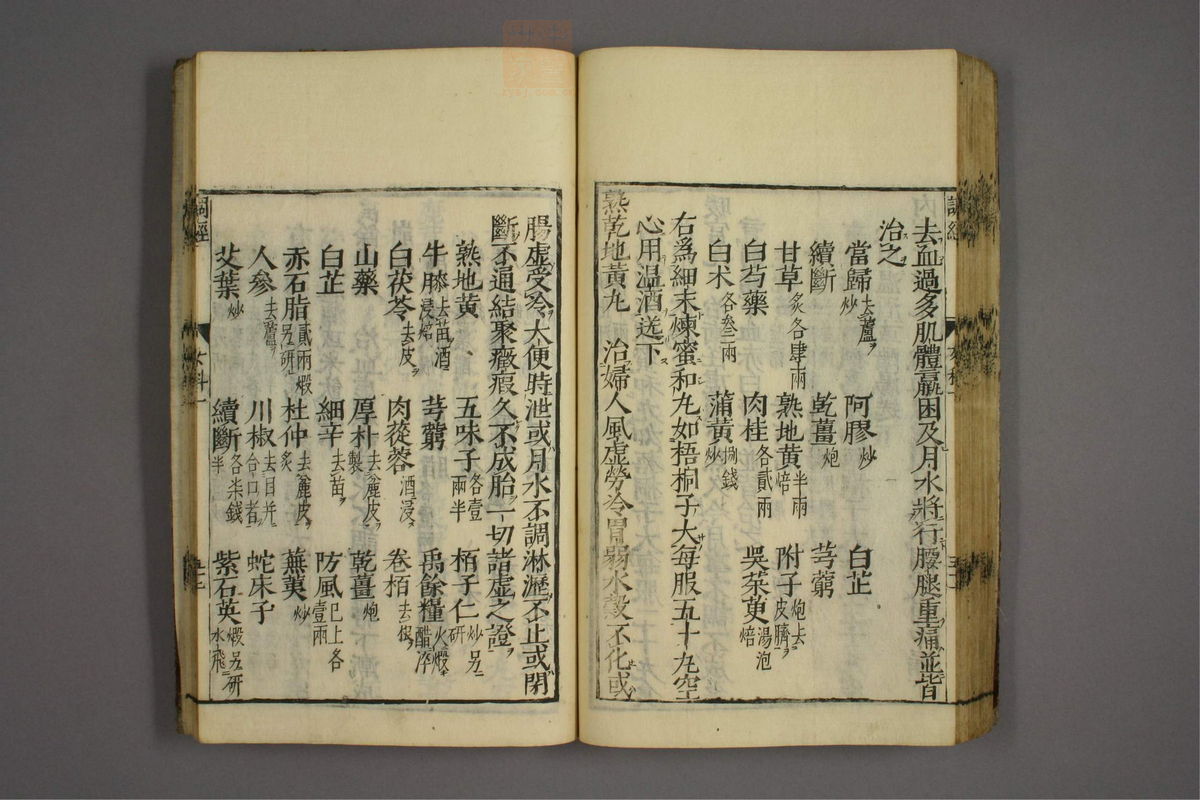 去血過多肌體羸困及月水將行腰腿重痛並皆
治之
當歸去蘆炒 阿膠炒 白芷
續斷 乾薑炮 芎藭
甘草炙各肆兩 熟地黃半兩焙 附子炮去皮臍
白芍藥 肉桂各貳兩 吳茱萸湯泡焙
白朮各叁兩 蒲黃捌錢炒
右爲細末煉蜜和丸如梧桐子大每服五十丸空
心用温酒送下
熟乾地黃丸 治婦人風虚勞冷胃弱水穀不化或
腸虚受冷大便時泄或月水不調淋瀝不止或閉
斷不通結聚癥瘕久不成胎一切諸虚之證
熟地黃 五味子各壹兩半 栢子仁炒另研
牛膝去苗酒浸焙 芎藭 禹餘糧火煅醋淬
白茯苓去皮 肉蓯蓉酒浸 卷栢去根
山藥 厚朴去麄皮製 乾薑炮
白芷 細辛去苗 防風已上各壹兩
赤石脂貳兩煅另研 杜仲去麄皮炙 蕪荑炒
人參去蘆 川椒去目并合口者 蛇床子
艾葉炒 續斷各柒錢半 紫石英煅另研水飛
調經
女科一